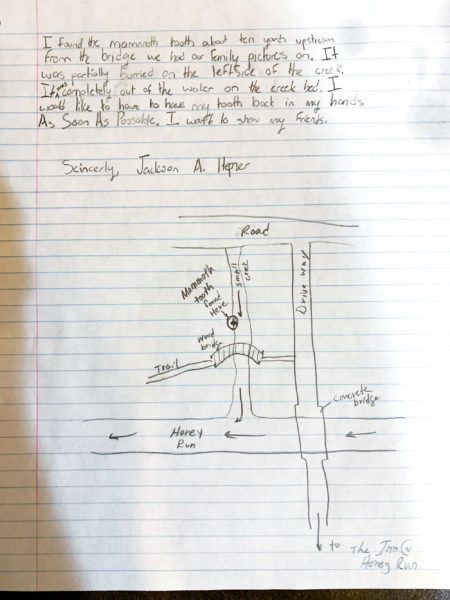 I found the mammoth tooth about ten yards upstream
from the bridge we had our family pictures on. It
was partially burried on the left side of the creek.
It was completely out of the water on the creek bed. I
would like to have to have my tooth back in my hands
As Soon As Possable. I want to show my friends.
Scincerly, Jackson A. Hepner
Road
Mammoth
tooth
found
Here
small
creek
Drive way
wood
bridge
Trail
concrete
bridge
Honey
Run
to The Inn @
Honey Run